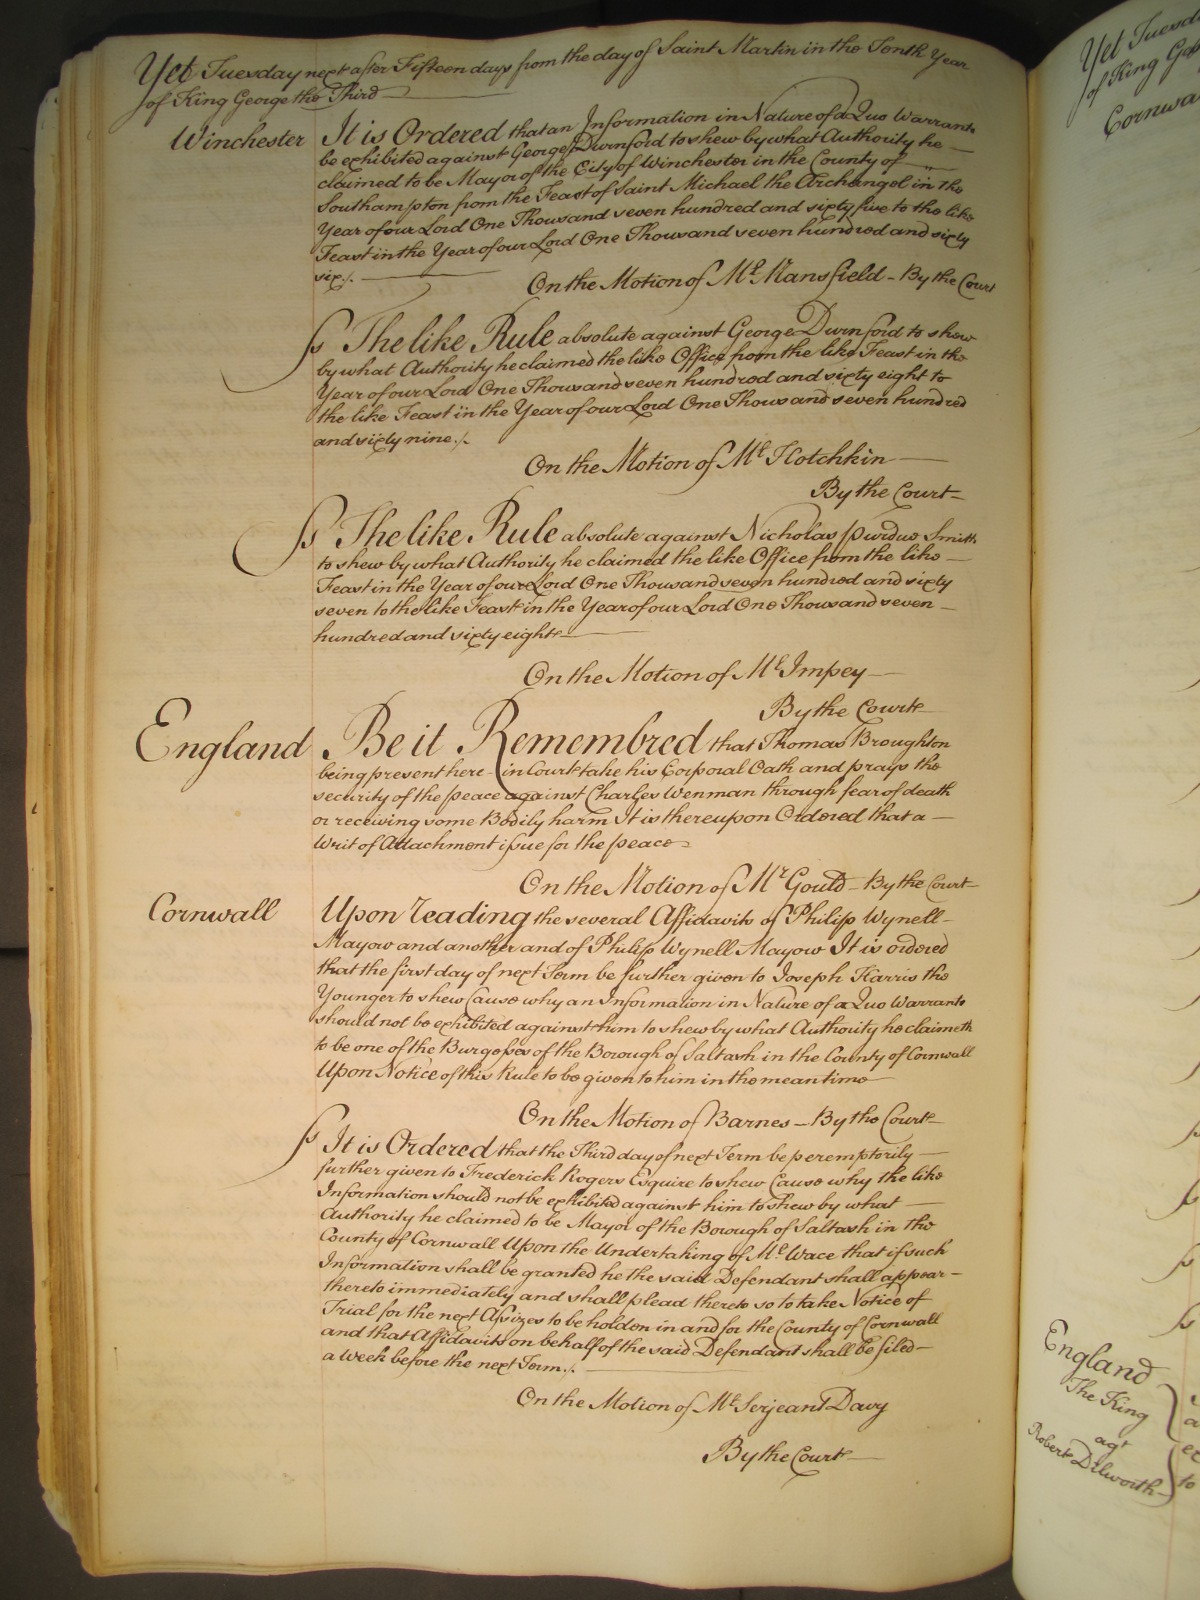 Yet Tuesday next after Fifteen days from the day of Saint Martin in the Tenth Year
of King George the Third
Winchester It is Ordered that an Information in Nature of a Quo Warranto
be exhibited against George Durnford to shew by what Authority he
claimed to be Mayor of the City of Winchester in the County of
Southampton from the Feast of Saint Michael the Archangel in the
Year of our Lord One Thousand seven hundred and sixty five to the like
Feast in the Year of our Lord One Thousand seven hundred and sixty
six/.
On the Motion of Mr. Mansfield - By the Court
ss The like Rule absolute against George Durnford to shew
by what Authority he claimed the like Office from the like Feast in the
Year of our Lord One Thousand seven hundred and sixty eight to
the like Feast in the Year of our Lord One Thousand seven hundred
and sixty nine./.
On the Motion of Mr. Hotchkin
By the Court
ss The like Rule absolute against Nicholas Purdue Smith
to shew by what Authority he claimed the like Office from the like
Feast in the Year of our Lord One Thousand seven hundred and sixty
seven to the like Feast in the Year of our Lord One Thousand seven
hundred and sixty eight
On the Motion of Mr. Impey
By the Court
England Be it Remembred that Thomas Broughton
being present here in Court take his Corporal Oath and prays the
security of the peace against Charles Wenman through fear of death
or receiving some Bodily harm It is thereupon Ordered that a
Writ of Attachment issue for the peace
On the Motion of Mr. Gould - By the Court
Cornwall Upon reading the several Affidavits of Philip Wynell
Mayow and another and of Philip Wynell Mayow It is ordered
that the first day of next Term be further given to Joseph Harris the
Younger to shew Cause why an Information in Nature of a Quo Warranto
should not be exhibited against him to shew by what Authority he claimeth
to be one of the Burgesses of the Borough of Saltash in the County of Cornwall
Upon Notice of this Rule to be given to him in the mean time
On the Motion of Barnes - By the Court
ss It is Ordered that the Third day of next Term be peremptorily
further given to Frederick Rogers Esquire to shew Cause why the like
Information should not be exhibited against him to shew by what
Authority he claimed to be Mayor of the Borough of Saltash in the
County of Cornwall Upon the Undertaking of Mr. Wace that if such
Information shall be granted he the said Defendant shall appear
thereto immediately and shall plead thereto so to take Notice of
Trial for the next Assizes to be holden in and for the County of Cornwall
and that Affidavits on behalf of the said Defendant shall be filed
a Week before the next Term./.
On the Motion of Mr. Serjeant Davy
By the Court
Yet Tuesda
of King Geo
Cornwa
ss
ss
ss
ss
England
The King
agt
Robert Dilworth
a
to